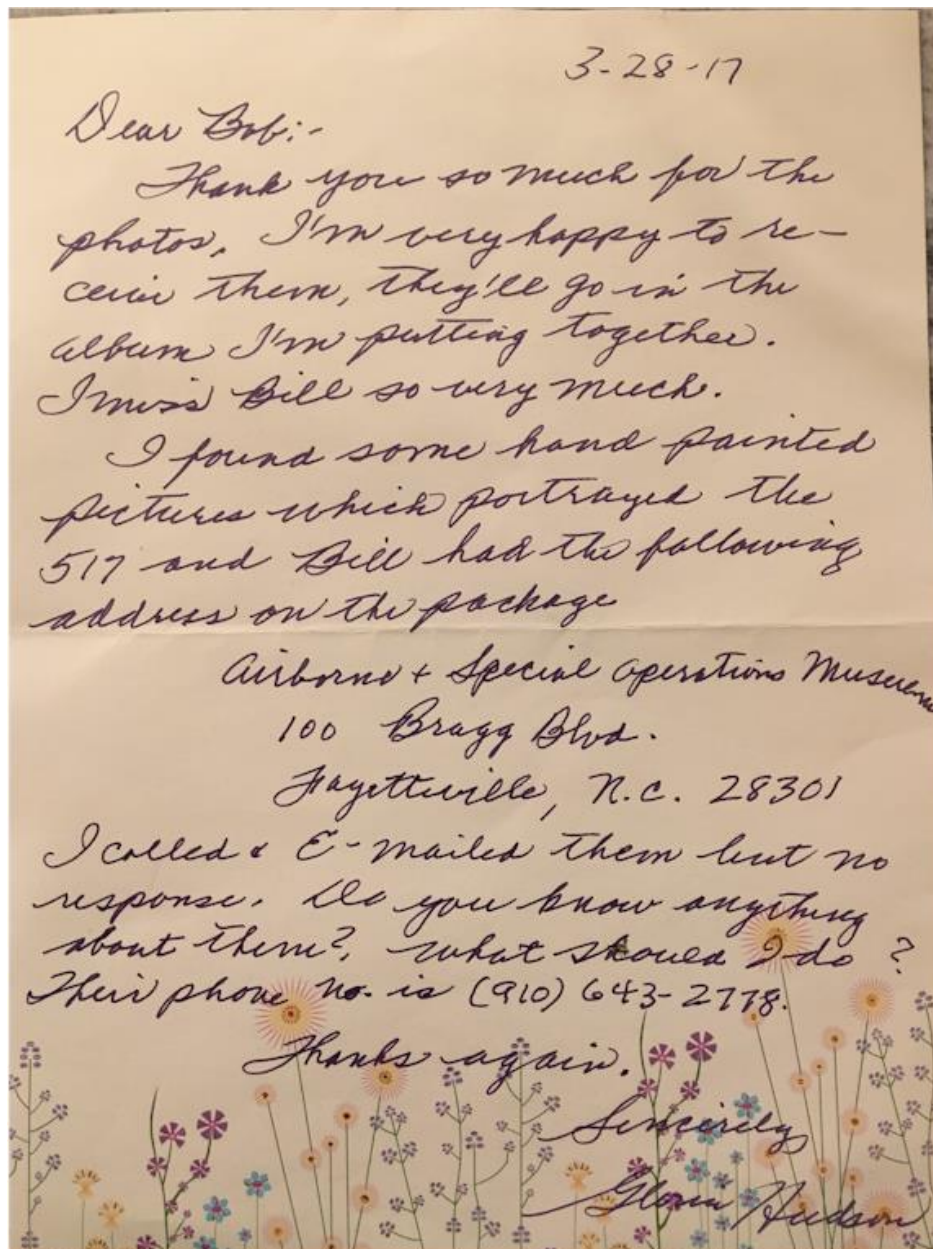 3-28-17
Dear Bob:-
Thank you so much for the
photos. I'm very happy to re-
ceive them, they'll go in the
album I'm putting together.
I miss Bill so very much.
I found some hand painted
pictures which portrayed the
517 and Bill had the following
address on the package
Airborne + Special Operations Museum
100 Bragg Blvd.
Fayetteville, N.C. 28301
I called & E-mailed them but no
response. Do you know anything
about them? What should I do?
Their phone no. is (910) 643-2778.
Thanks again.
Sincerely
Gloria Hudson